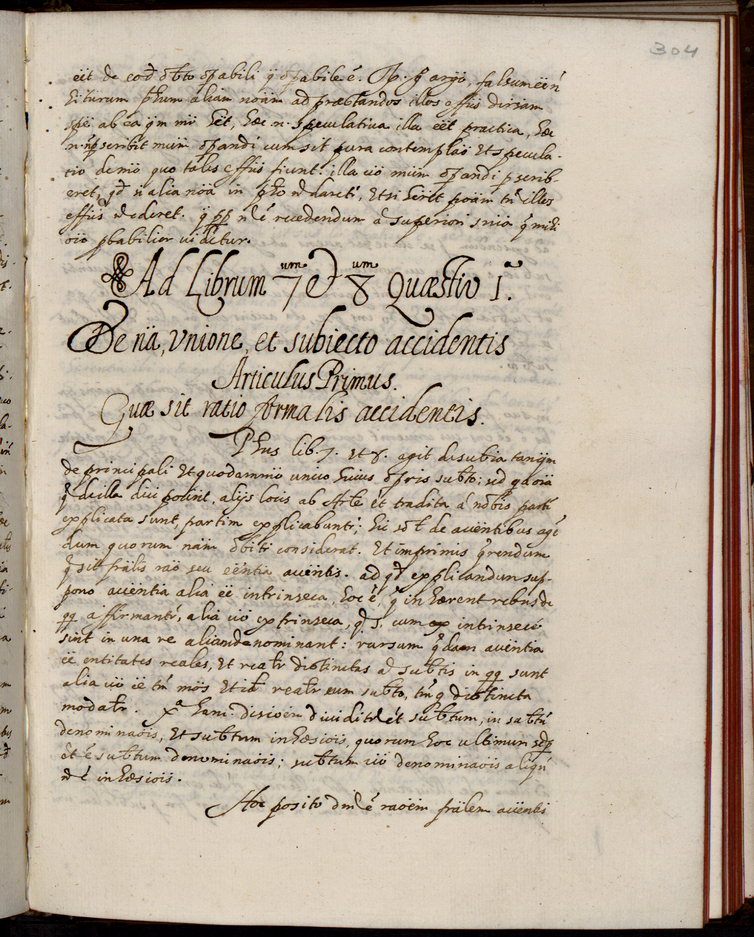 304
eēt de eod obto opabili q̄ opabile ē. Np. q̄ argr. falsum eē n̄
hiturum phum aliam noām ad praestandos illos effūs
ab ea qm hēt, haec n. speculativa illa eēt practica, haec
n. n̄ pscribit mūm opandi cum sit pura contemplāo et specula-
tio de mōo quo tales effūs fiunt: illa uō mūm opandi pscrib
eret, qd n̄ alia noā in pho n̄ daretr, Et si hēret poām tn̄ illos
effūs n̄ ederet. q̄ pp n̄ ē recedendum a superiori snīa q̄ mihi
oīo pbabilior uidetur.
Ad Librum 7um et 8um Quæstio 1a.
De nā, Vnione, et subiecto accidentis
Articulus Primus.
Quæ sit ratio formalis accidentis.
Phus lib. 7. et 8. agit de subīa tanqm
de principali et quodammō unico huius opris subto: sed qa oīa
q̄ de illa dici possint, alijs locis ab Arle et tradita a nobis partī
explicata sunt, partim explicabuntr; hic sōt de accntibus agē
dum quorum nām obiti considerat. Et imprimis q̄rendum
q̄ sit frālis rāo seu eēntia accntis. ad qd explicandum sup-
pono accntia alia eē intrinseca, hoc ē, q̄ inhærent rebus de
qq affirmantr, alia uō extrinseca, q̄ s. cum ex intrinsece
sint in una re aliam denominant: rursum q̄dam accntia
eē entitates reales, et realr distinctas a subtis in qq sunt
alia uō eē tn̄ mōs et id realr eum subto, tn̄ q̄ distincta
modalr. Pa hanc diuīoēm diuiditr et subtum, in subtū
denominaōis, et subtum inhæsiōis, quorum hoc ultimum sēp
ēt ē subtum denominaōis; subtum uō denominaōis aliqn̄
n̄ ē inhæsiōis.
Hoc posito dm̄ ē raōēm frālem accntis